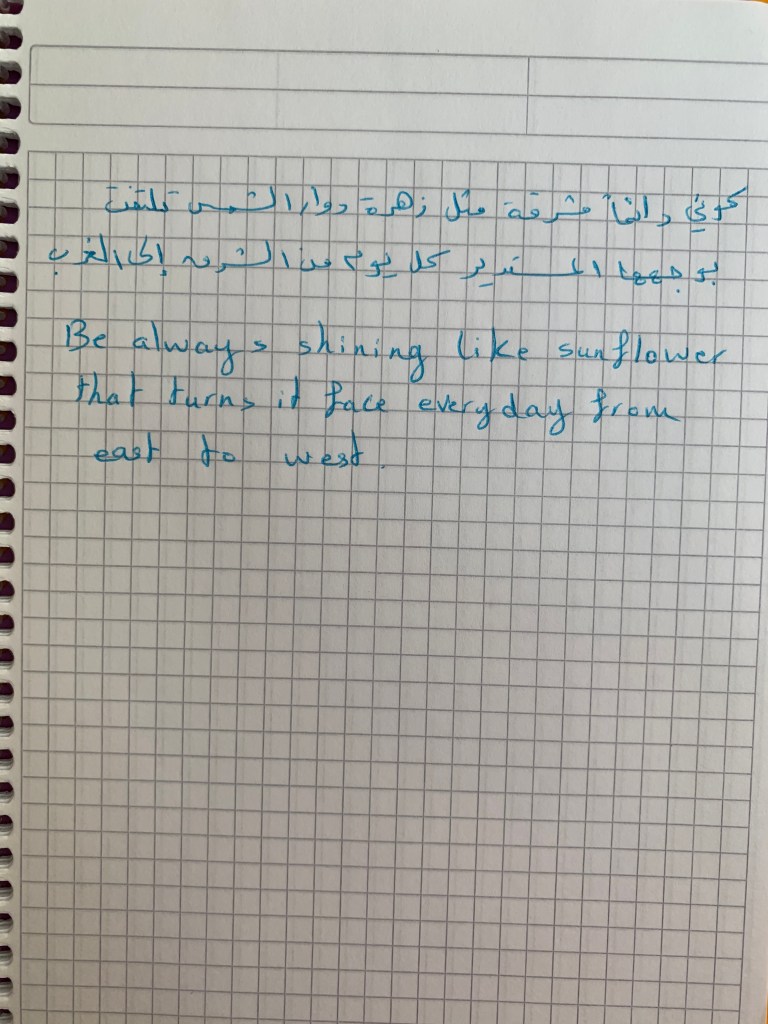 كوني دائماً مشرقة مثل زهرة دوار الشمس تلتفت
بوجهها المستدير كل يوم من الشرق إلى الغرب
Be always shining like sunflower
that turns it face everyday from
east to west.